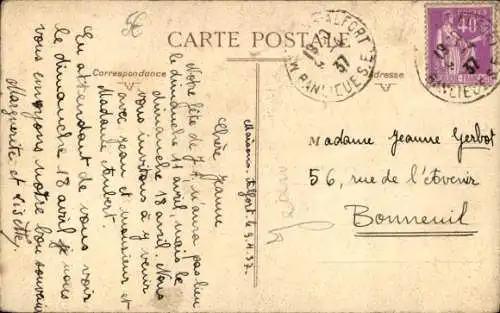 5€
CARTE POSTALE
Correspondance
Maisons-Alfort le 9.4.37.
Chère Jeanne
Notre fête de J. A. n'aura pas lieu
le dimanche 11 avril, mais le
dimanche 18 avril. Nous
vous invitons à y venir
avec Jean et monsieur et
Madame Aubert.
En attendant de vous voir
le dimanche 18 avril je nous
vous envoyons notre bon souvenir
Marguerite et Lisette.
ALFORT
37
BANLIEUE S.E
40c
37
BANLIEUE S.E
Madame Jeanne Gerbot
56, rue de l'Avenir
Bonneuil